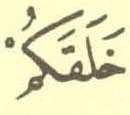 خَلَقَكُمْ